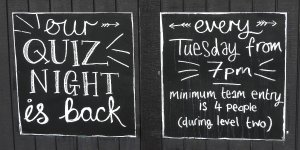 our
QUIZ
NIGHT
is back
every
Tuesday from
7pm
minimum team entry
is 4 people
(during level two)